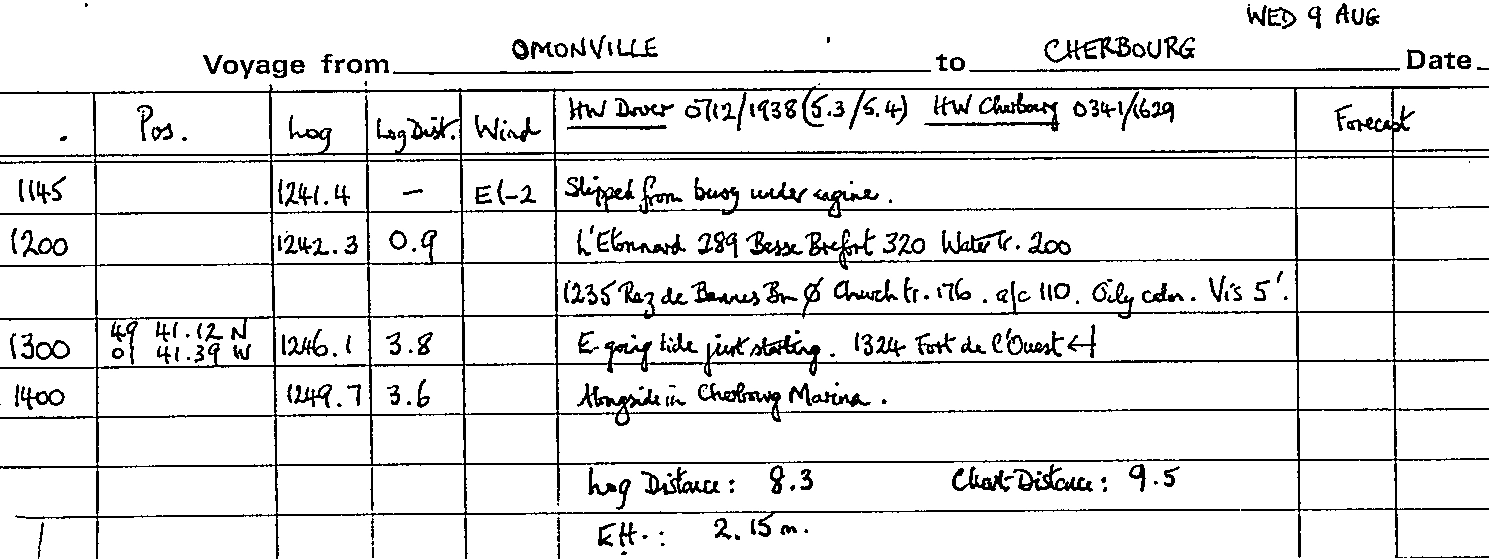 WED 9 AUG
Voyage from OMONVILLE to CHERBOURG Date
Pos. Log Log Dist. Wind HW Dover 0712/1938 (5.3/5.4) HW Cherbourg 0341/1629 Forecast
1145 1241.4 – E1-2 Slipped from buoy under engine.
1200 1242.3 0.9 L'Etonnard 289 Basse Brefort 320 Water tr. 200
1235 Raz de Bannes Bn Ø Church tr. 176. a/c 110. Oily calm. Vis 5'.
49 41.12 N
1300 01 41.39 W 1246.1 3.8 E-going tide just starting. 1324 Fort de l'Ouest
1400 1249.7 3.6 Alongside in Cherbourg Marina.
Log Distance: 8.3 Chart Distance: 9.5
E.H.: 2.15 m.